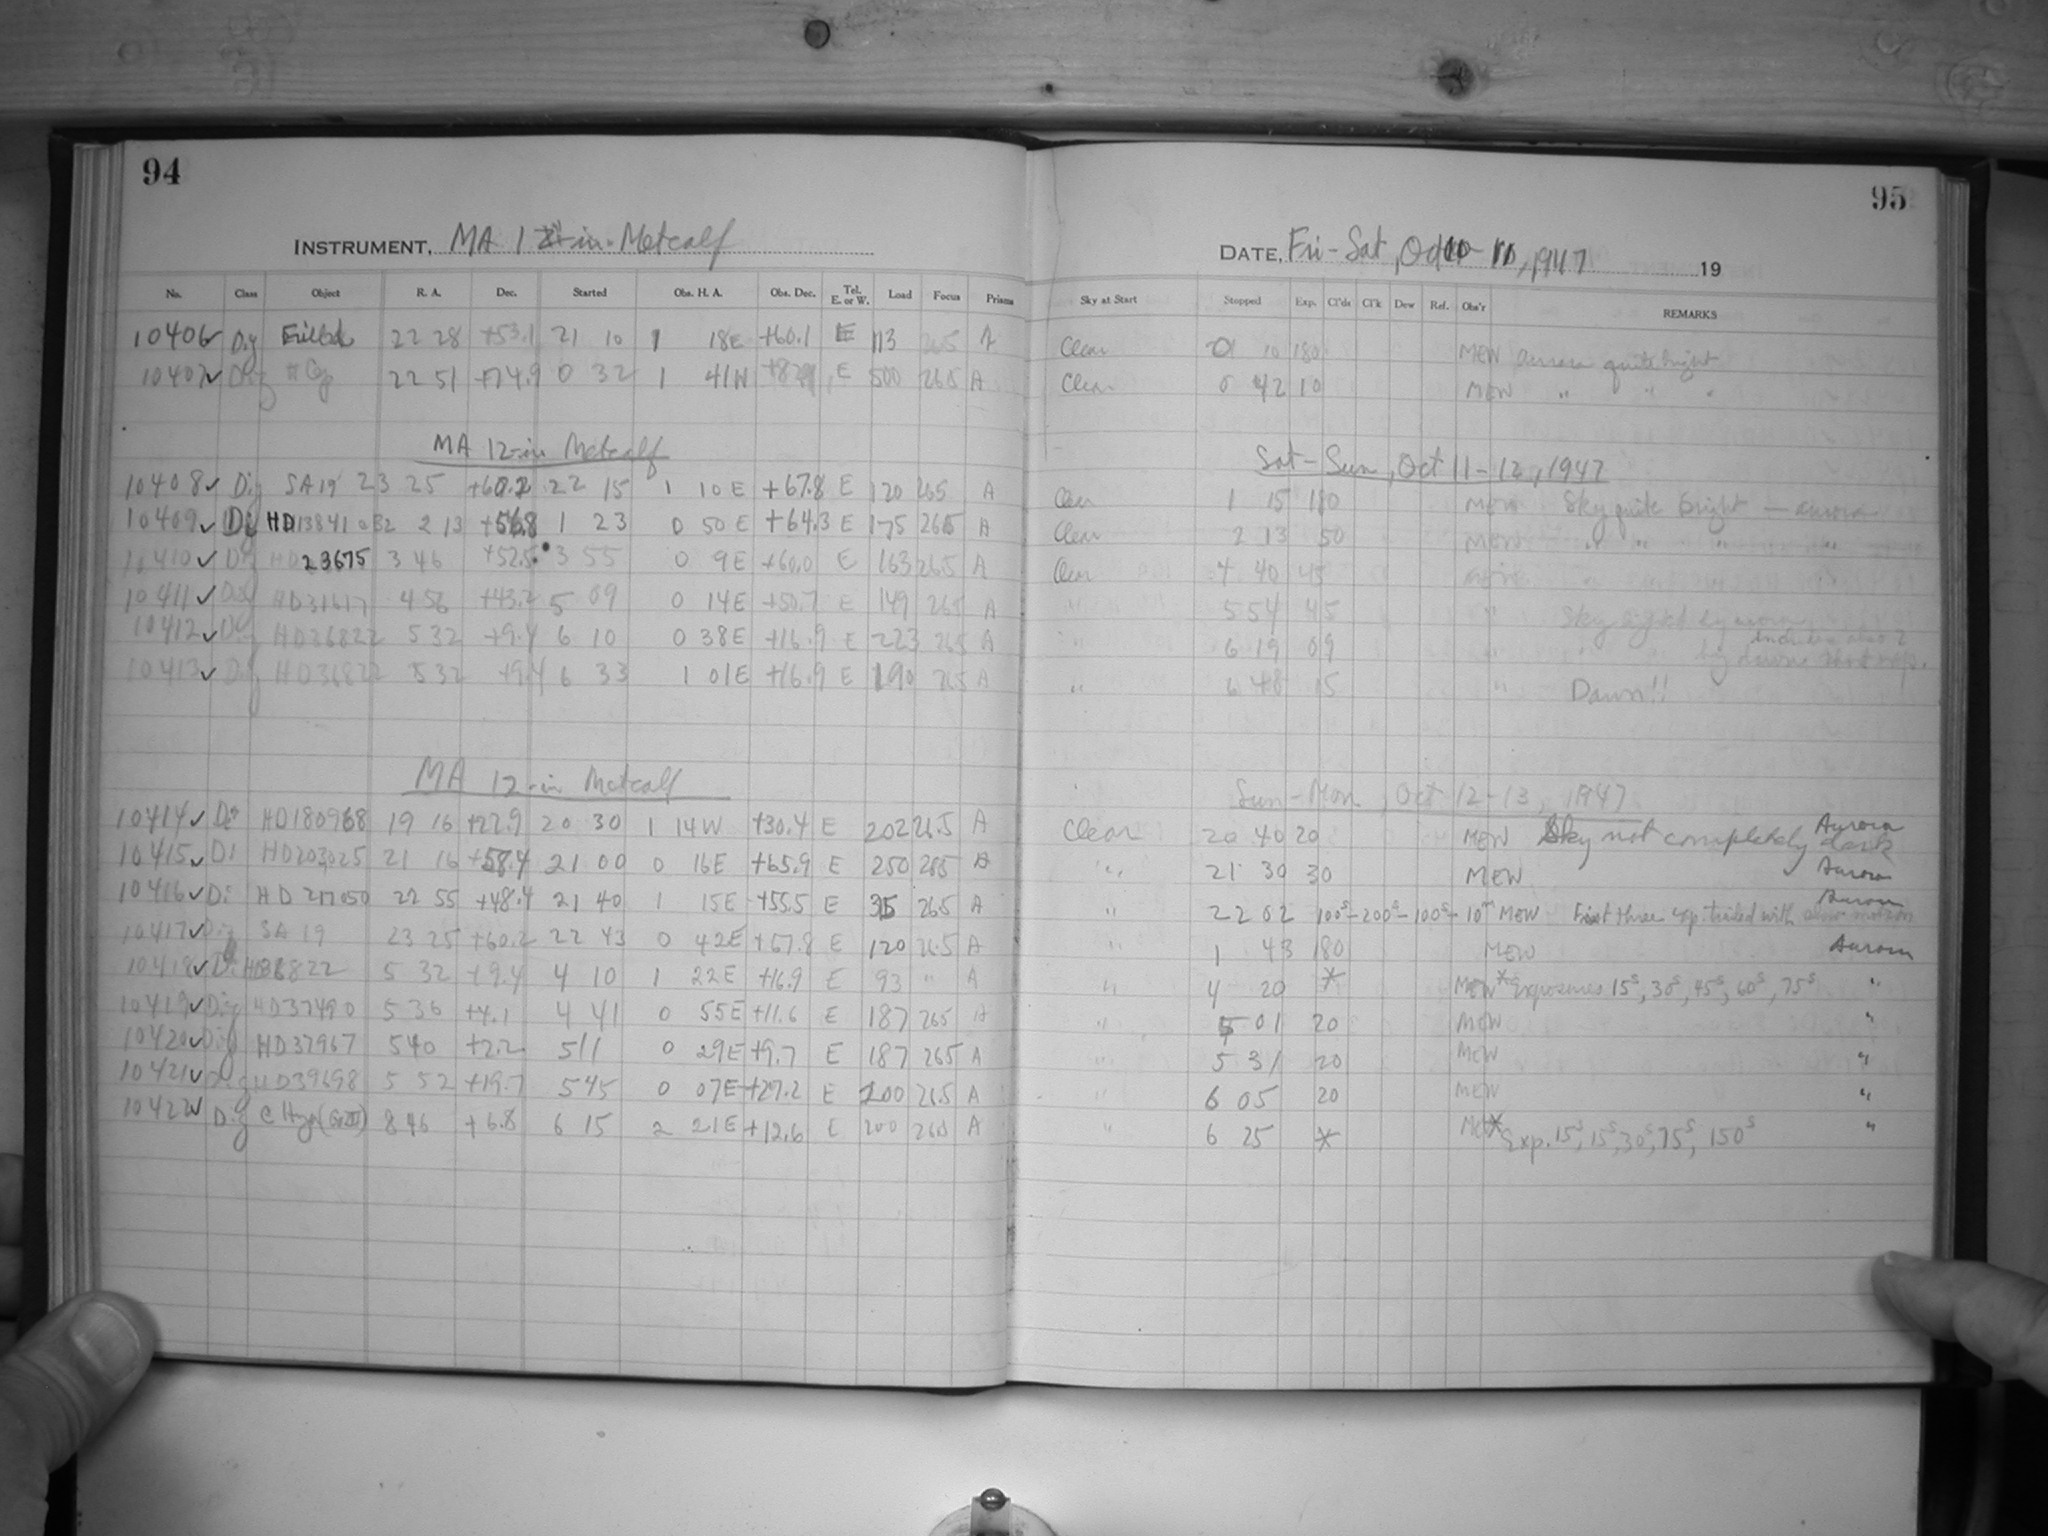 94
INSTRUMENT, MA 12-in. Metcalf
No. Class Object R. A. Dec. Started Obs. H. A. Obs. Dec. Tel. E. or W. Load Focus Prisms
10406 ✓ 22 28 +53.1 21 10 1 18E +60.1 E 113 265 A
10407 ✓ 22 51 +74.9 0 32 1 41W E 500 265 A
MA 12-in Metcalf
10408 ✓ Dig SA19 23 25 +60.2 22 15 1 10 E +67.8 E 120 265 A
10409 ✓ Dig HD13841 2 13 +56.8 1 23 0 50 E +64.3 E 175 265 A
10410 ✓ Dig HD23675 3 46 +52.5 3 55 0 9E +60.0 E 163 265 A
10411 ✓ Dig HD31617 4 56 +43.2 5 09 0 14E +50.7 E 149 265 A
10412 ✓ Dig HD36822 5 32 +9.4 6 10 0 38E +16.9 E 223 265 A
10413 ✓ Dig HD36822 5 32 +9.4 6 33 1 01E +16.9 E 190 265 A
MA 12-in Metcalf
10414 ✓ Di HD180968 19 16 +22.9 20 30 1 14W +30.4 E 202 26.5 A
10415 ✓ Di HD203025 21 16 +58.4 21 00 0 16E +65.9 E 250 265 A
10416 ✓ Di HD217050 22 55 +48.4 21 40 1 15E +55.5 E 26.5 A
10417 ✓ Dig SA 19 23 25 +60.2 22 43 0 42E +67.8 E 120 26.5 A
10418 ✓ Dig HD36822 5 32 +9.4 4 10 1 22E +16.9 E 93 " A
10419 ✓ Dig HD37490 5 36 +4.1 4 41 0 55E +11.6 E 187 265 A
10420 ✓ Dig HD37967 5 40 +2.2 5 11 0 29E +9.7 E 187 265 A
10421 ✓ Dig HD39698 5 52 +19.7 5 45 0 07E +27.2 E 200 26.5 A
10422 ✓ Dig 8 46 +6.8 6 15 2 21E E 200 265 A
95
DATE, Fri-Sat, Oct 10-11, 1947 19
Sky at Start Stopped Exp. Cl'ds Cl'k Dew Ref. Obs'r REMARKS
Clear 10 180 MEW Aurora quite bright
Clear 0 42 10 MEW " " "
Sat-Sun, Oct 11-12, 1947
Clear 1 15 180 MEW Sky quite bright — aurora
Clear 2 13 50 MEW " " " "
Clear 4 40 45
" 5 54 45 " Sky
" 6 19 09
" 6 48 15 " Dawn!!
Sun-Mon, Oct 12-13, 1947
Clear 20 40 20 MEW Sky not completely dark Aurora
" 21 30 30 MEW Aurora
" 22 02 100s-200s-100s-10m MEW First three exp. trailed with Aurora
" 1 43 180 MEW Aurora
" 4 20 * MEW *Exposures 15s, 30s, 45s, 60s, 75s "
" 5 01 20 MEW "
" 5 31 20 MEW "
" 6 05 20 MEW "
" 6 25 * MEW *Exp. 15s, 15s, 30s, 75s, 150s "